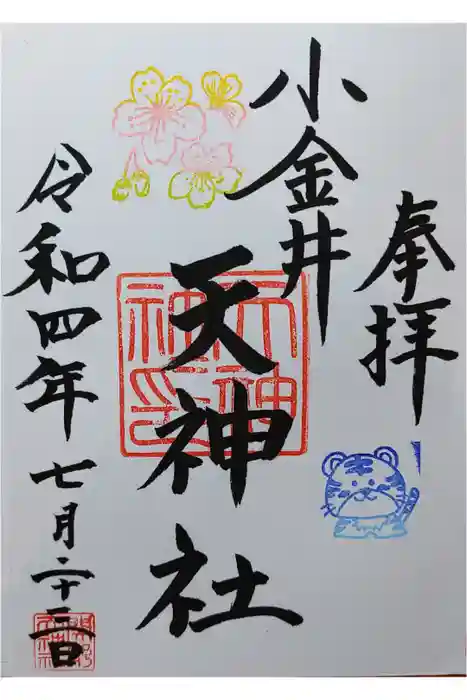 奉拝
小金井
天神社
令和四年七月二十三日